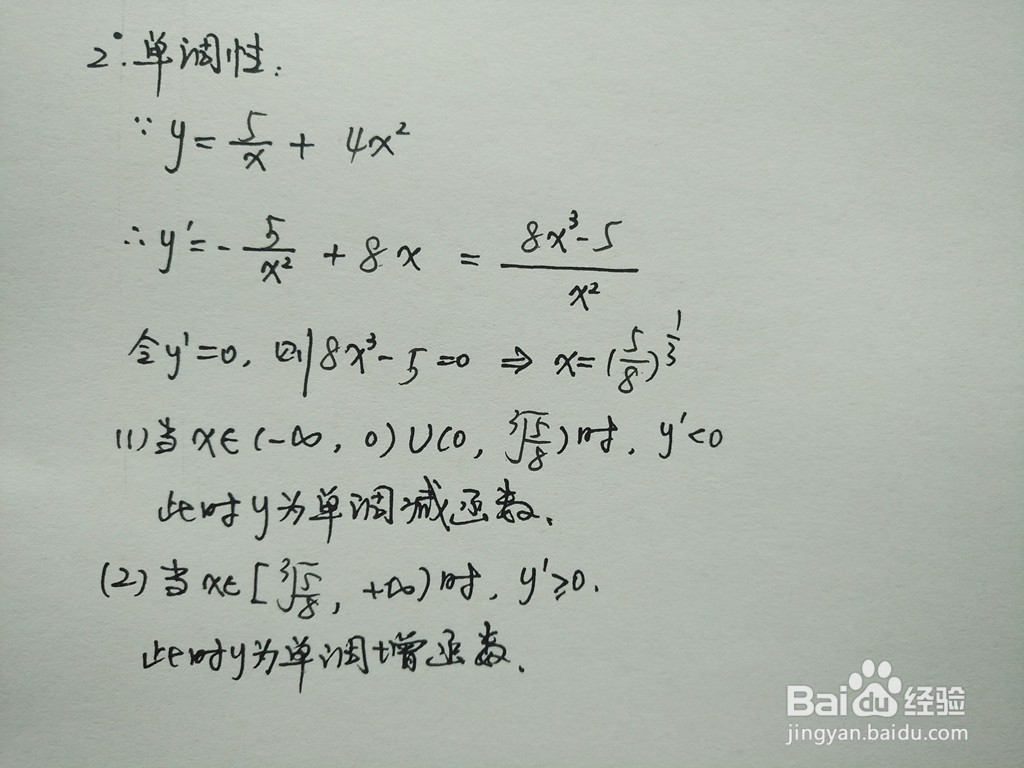 2°.单调性:
∵ y = 5/x + 4x²
∴ y' = - 5/x² + 8x = (8x³-5)/x²
令y'=0, 则8x³-5=0 ⇒ x=(5/8)^(1/3)
(1)当x∈(-∞, 0)∪(0, ∛(5/8))时, y'<0
此时y为单调减函数.
(2)当x∈[∛(5/8), +∞)时, y'≥0.
此时y为单调增函数.
Baidu经验
jingyan.baidu.com